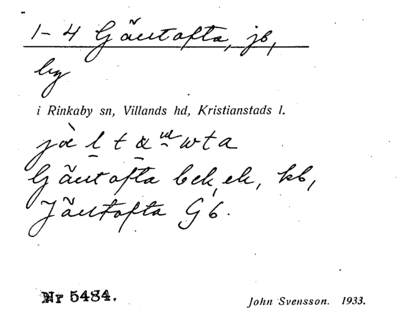 1-4 Gäustofta, jb,
by
i Rinkaby sn, Villands hd, Kristianstads l.
Gäustofta bek, ek, kb,
Jäustofta Gb.
Nr 5484.
John Svensson. 1933.